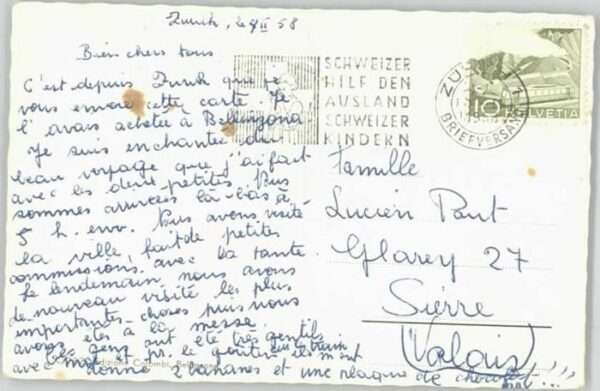 Zurich, le 8 II 58
Bien chers tous
C'est depuis Zurich que je
vous envoie cette carte. Je
l'avais achetée à Bellinzona.
Je suis enchantée du
beau voyage que j'ai fait
avec les deux petites. Nous
sommes arrivées là-bas à
5 h. env. Nous avons visité
la ville, fait de petites
commissions avec la tante.
Le lendemain, nous avons
de nouveau visité les plus
importantes choses puis nous
avons étés à la messe.
Les gens ont été très gentils
dans le train
et pr. le goûter ils m'ont
donné 2 bananes et une plaque de chocolat
SCHWEIZER
HILF DEN
AUSLAND
SCHWEIZER
KINDERN
BRIEFVERSAND
10
HELVETIA
Famille
Lucien Pont
Glarey 27
Sierre
(Valais)